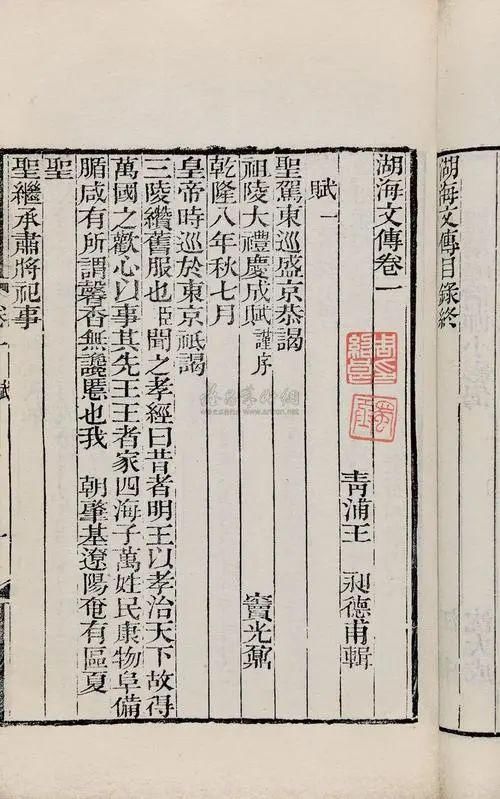 湖海文傳目錄終
湖海文傳卷一
青浦王　昶德甫輯
賦一
聖駕東巡盛京恭謁
祖陵大禮慶成賦謹序　竇光鼐
乾隆八年秋七月
皇帝時巡於東京祇謁
三陵纘舊服也臣聞之孝經曰昔者明王以孝治天下故得
萬國之歡心以事其先王王者家四海子萬姓民康物阜備
腯咸有所謂馨香無讒慝也我　朝肇基遼陽奄有區夏
聖
聖繼承肅將祀事
卷一　賦　一